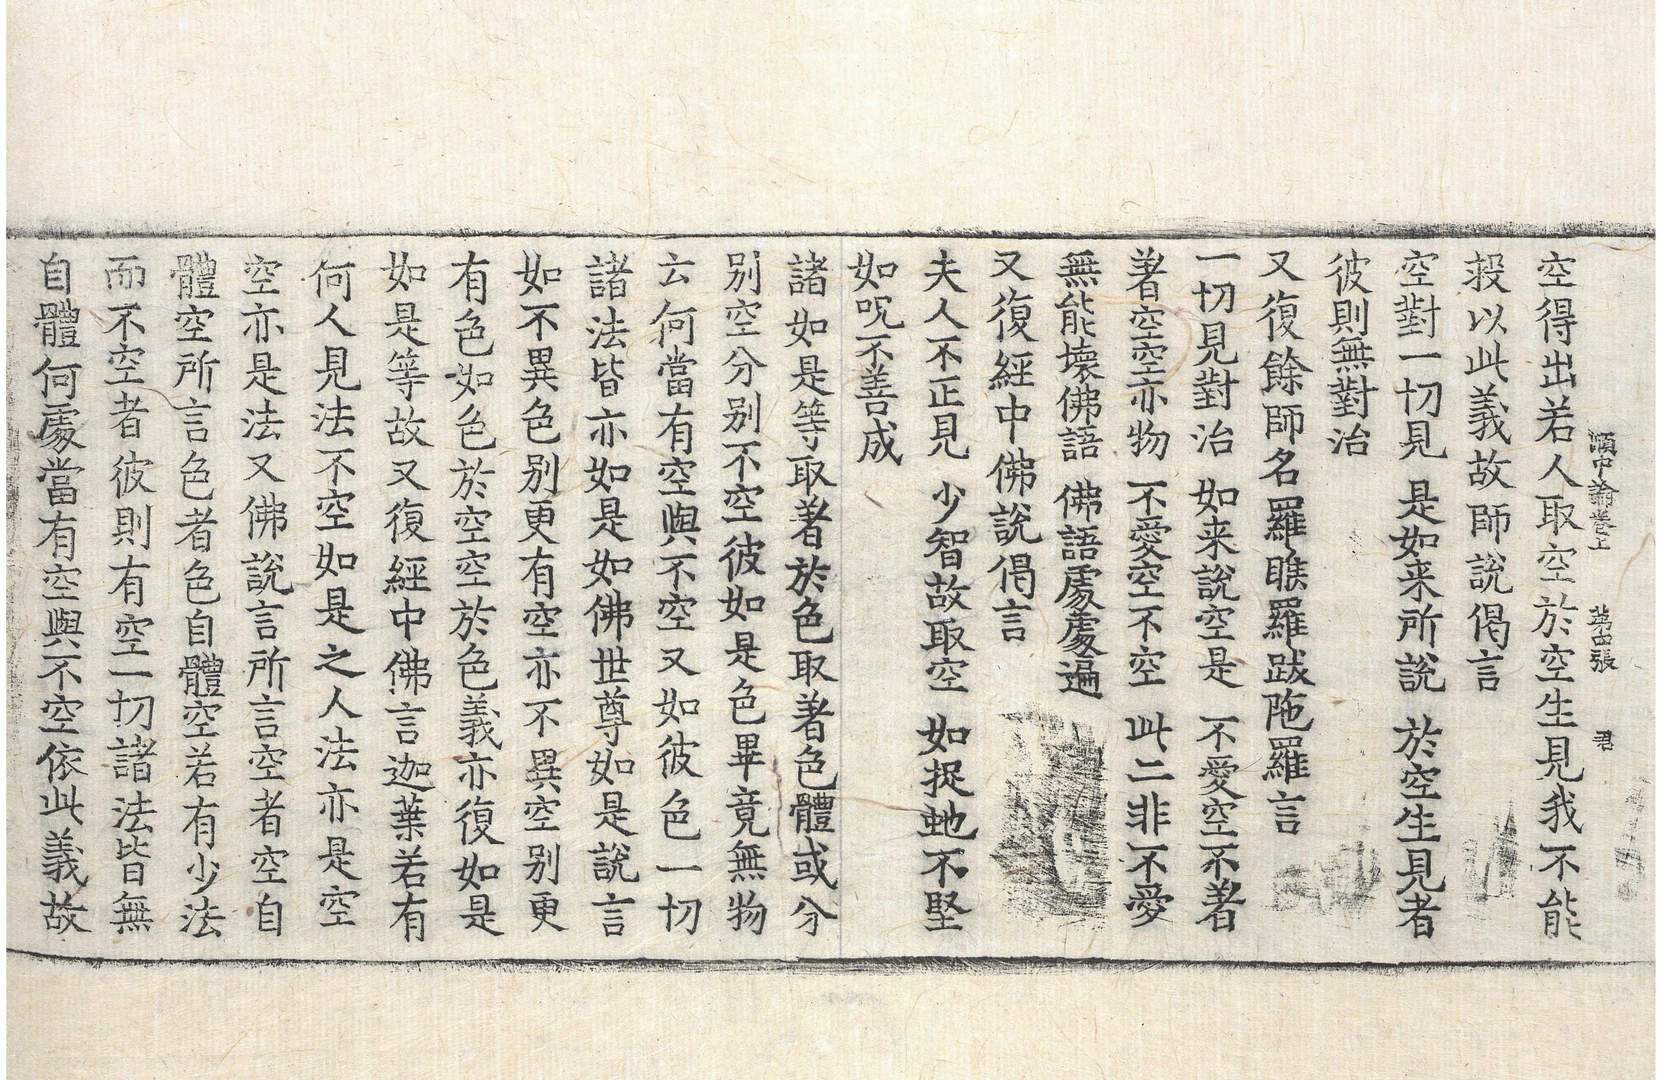 順中論卷上 第四張 君
空得出若人取空於空生見我不能
投以此義故師說偈言
空對一切見 是如来所說 於空生見者
彼則無對治
又復餘師名羅睺羅跋陁羅言
一切見對治 如来說空是 不愛空不著
著空空亦物 不愛空不空 此二非不愛
無能壞佛語 佛語處處遍
又復經中佛說偈言
夫人不正見 少智故取空 如捉虵不堅
如呪不善成
諸如是等取著於色取著色體或分
别空分别不空彼如是色畢竟無物
云何當有空與不空又如彼色一切
諸法皆亦如是如佛世尊如是說言
如不異色别更有空亦不異空别更
有色如色於空空於色義亦復如是
如是等故又復經中佛言迦葉若有
何人見法不空如是之人法亦是空
空亦是法又佛說言所言空者空自
體空所言色者色自體空若有少法
而不空者彼則有空一切諸法皆無
自體何處當有空與不空依此義故